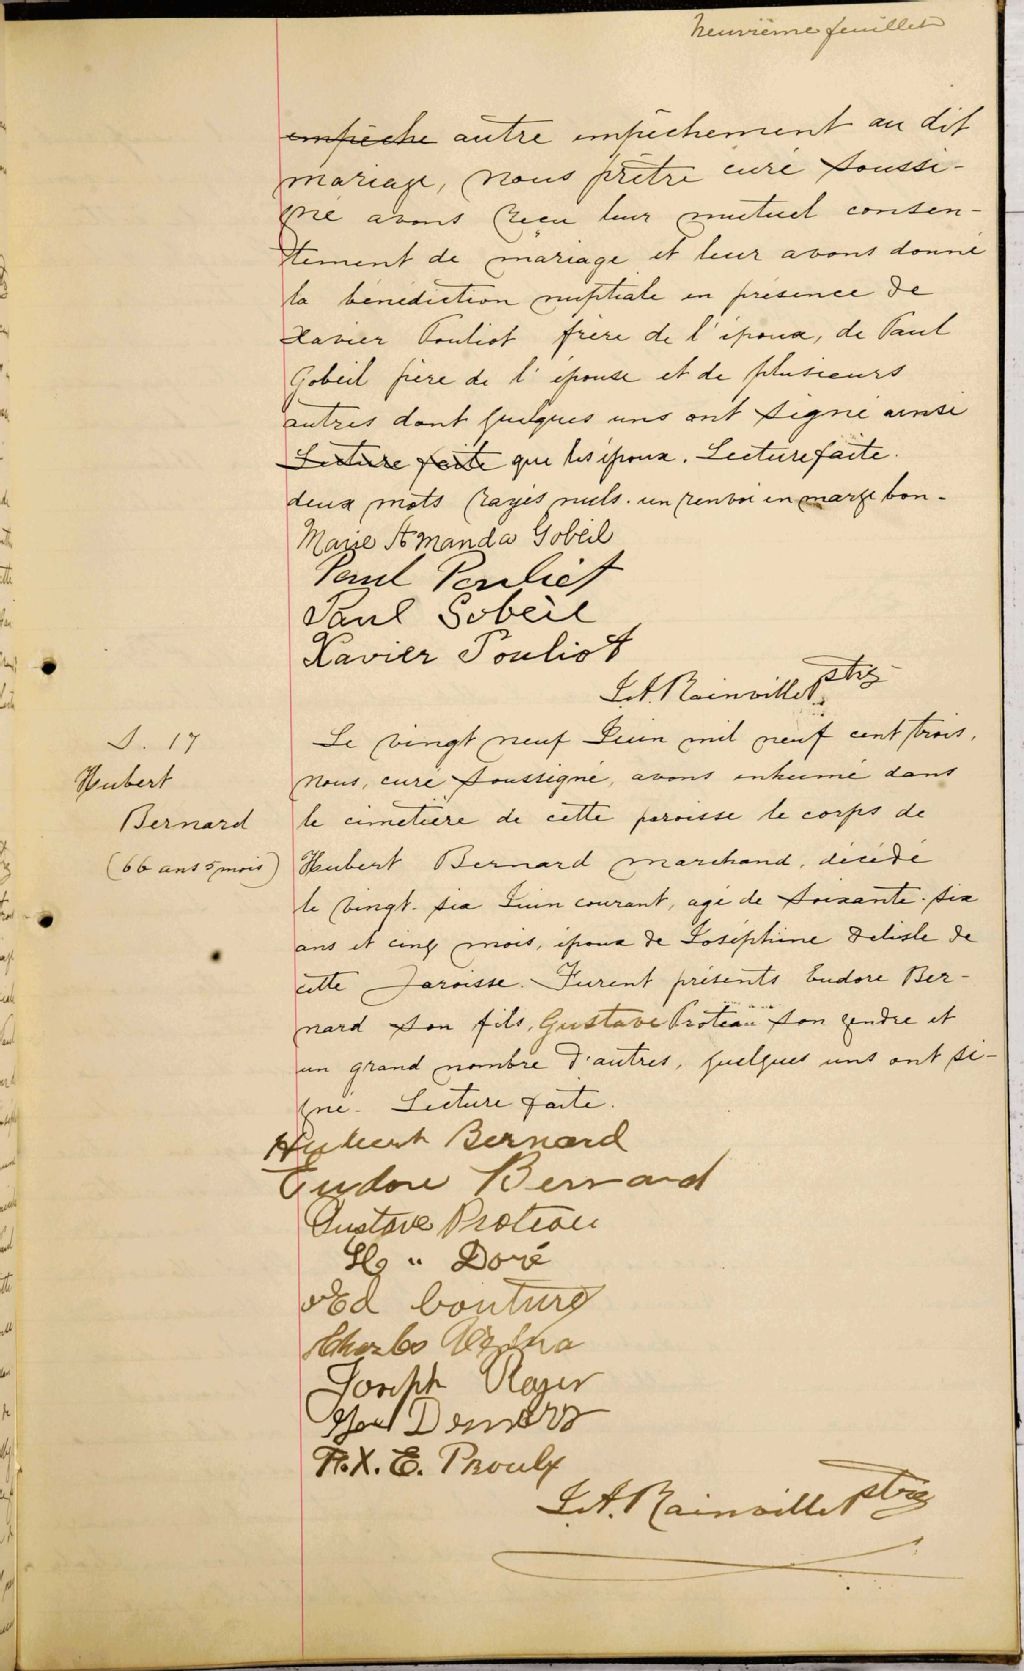 Neuvième feuillet
empêche autre empêchement au dit
mariage, nous prêtre curé soussi-
gné avons reçu leur mutuel consen-
tement de mariage et leur avons donné
la bénédiction nuptiale en présence de
Xavier Pouliot frère de l'époux, de Paul
Gobeil père de l'épouse et de plusieurs
autres dont quelques uns ont signé ainsi
Lecture faite que les époux. Lecture faite.
deux mots rayés nuls. un renvoi en marge bon.
Marie Amanda Gobeil
Paul Pouliot
Paul Gobeil
Xavier Pouliot
J.A. Rainville Ptre
S. 17
Hubert
Bernard
(66 ans 5 mois)
Le vingt neuf Juin mil neuf cent trois,
nous, curé soussigné, avons inhumé dans
le cimetière de cette paroisse le corps de
Hubert Bernard marchand, décédé
le vingt-six Juin courant, agé de soixante-six
ans et cinq mois, époux de Joséphine Delisle de
cette paroisse. Furent présents Eudore Ber-
nard son fils, Gustave Proteau son gendre et
un grand nombre d'autres, quelques uns ont si-
gné. Lecture faite.
Hubert Bernard
Eudore Bernard
Gustave Proteau
Doré
Ed Couture
Charles Vézina
Joseph Roger
Demers
F.X.E. Proulx
J.A. Rainville Ptre